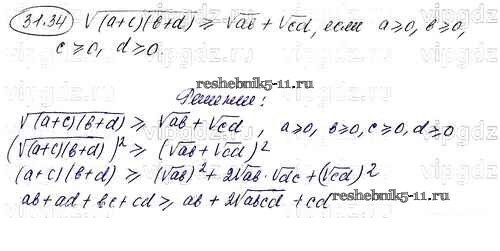 31.34 √(a+c)(b+d) ≥ √ab + √cd, если a≥0, b≥0,
c≥0, d≥0.
reshebnik5-11.ru
Решение:
√(a+c)(b+d) ≥ √ab + √cd, a≥0, b≥0, c≥0, d≥0
(√(a+c)(b+d))² ≥ (√ab + √cd)²
(a+c)(b+d) ≥ (√ab)² + 2√ab · √dc + (√cd)²
ab + ad + bc + cd ≥ ab + 2√abcd + cd
reshebnik5-11.ru